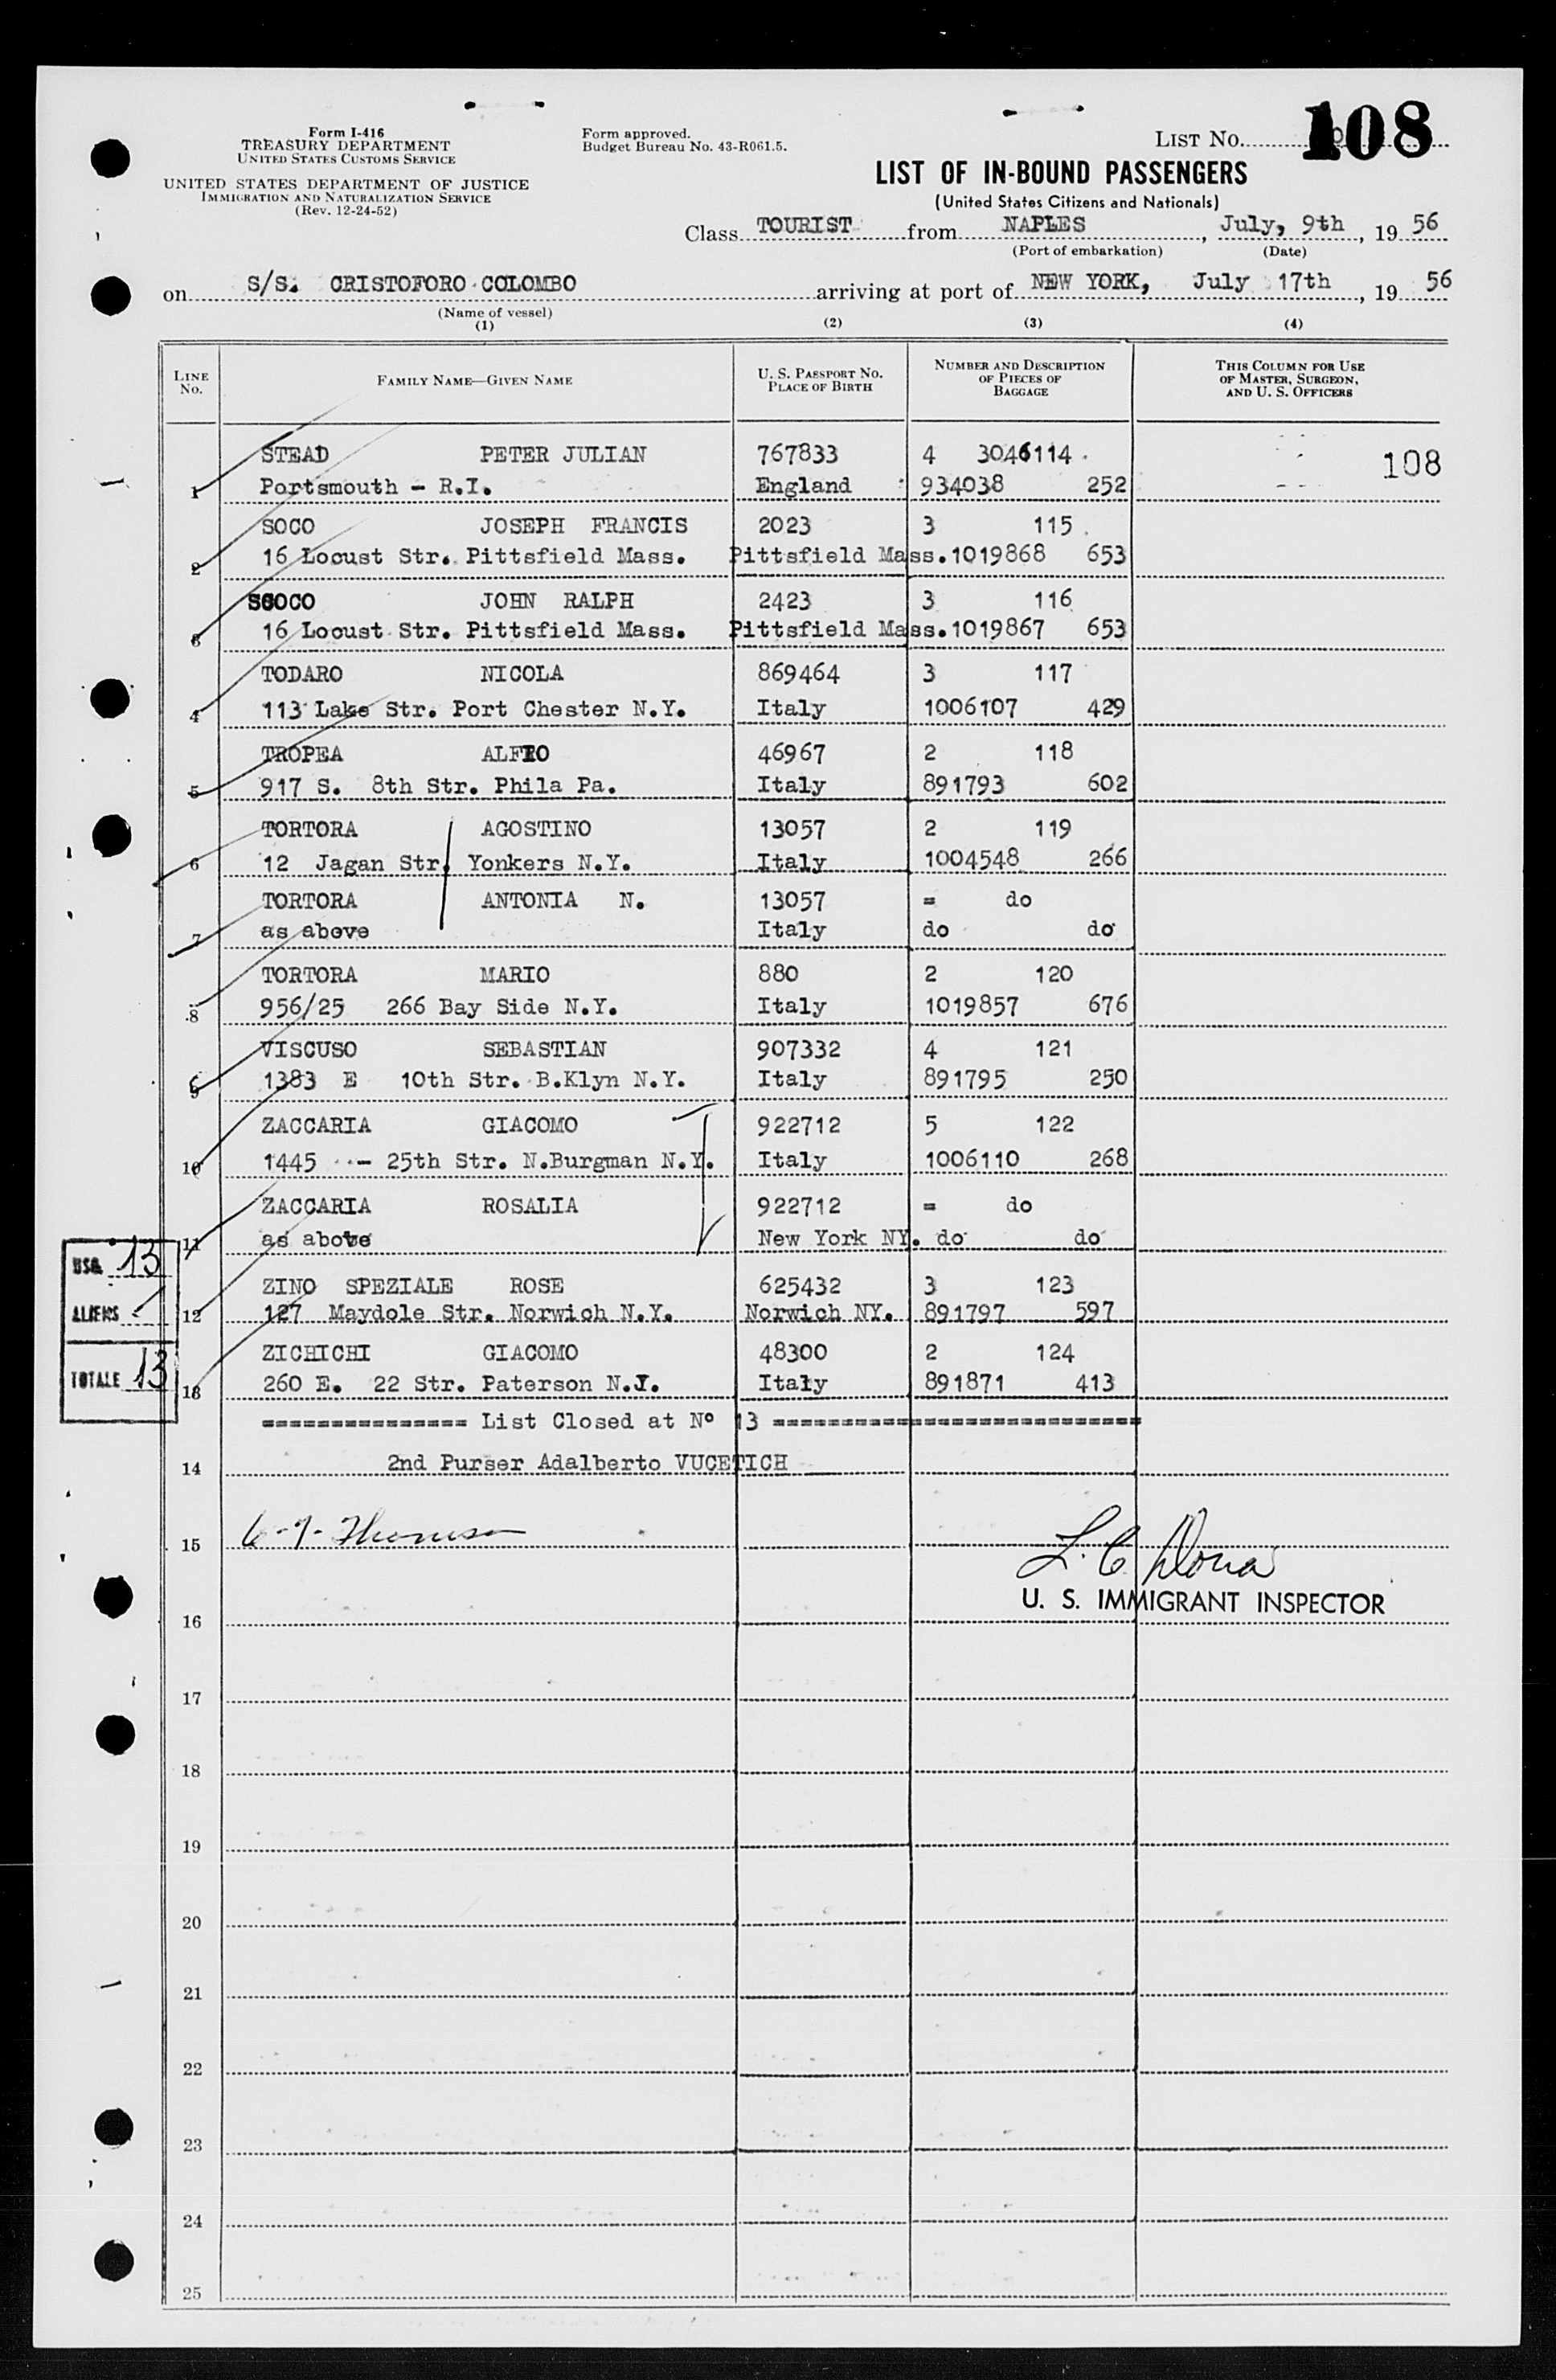 Form I-416
TREASURY DEPARTMENT
UNITED STATES CUSTOMS SERVICE
UNITED STATES DEPARTMENT OF JUSTICE
IMMIGRATION AND NATURALIZATION SERVICE
(Rev. 12-24-52)
Form approved.
Budget Bureau No. 43-R061.5.
LIST NO. 108
LIST OF IN-BOUND PASSENGERS
(United States Citizens and Nationals)
Class TOURIST from NAPLES, July, 9th, 19 56
(Port of embarkation) (Date)
on S/S. CRISTOFORO COLOMBO arriving at port of NEW YORK, July 17th, 19 56
(Name of vessel)
(1) (2) (3) (4)
LINE No. FAMILY NAME—GIVEN NAME U. S. PASSPORT NO. PLACE OF BIRTH NUMBER AND DESCRIPTION OF PIECES OF BAGGAGE THIS COLUMN FOR USE OF MASTER, SURGEON, AND U. S. OFFICERS
STEAD PETER JULIAN 767833 4 3046114 108
1 Portsmouth - R.I. England 934038 252
SOCO JOSEPH FRANCIS 2023 3 115
2 16 Locust Str. Pittsfield Mass. Pittsfield Mass. 1019868 653
SOCO JOHN RALPH 2423 3 116
3 16 Locust Str. Pittsfield Mass. Pittsfield Mass. 1019867 653
TODARO NICOLA 869464 3 117
4 113 Lake Str. Port Chester N.Y. Italy 1006107 429
TROPEA ALFIO 46967 2 118
5 917 S. 8th Str. Phila Pa. Italy 891793 602
TORTORA AGOSTINO 13057 2 119
6 12 Jagan Str. Yonkers N.Y. Italy 1004548 266
TORTORA ANTONIA N. 13057 = do
7 as above Italy do do
TORTORA MARIO 880 2 120
8 956/25 266 Bay Side N.Y. Italy 1019857 676
VISCUSO SEBASTIAN 907332 4 121
9 1383 E 10th Str. B.Klyn N.Y. Italy 891795 250
ZACCARIA GIACOMO 922712 5 122
10 1445 - 25th Str. N.Burgman N.Y. Italy 1006110 268
ZACCARIA ROSALIA 922712 = do
11 as above New York NY. do do
USA 13
ZINO SPEZIALE ROSE 625432 3 123
ALIENS
12 127 Maydole Str. Norwich N.Y. Norwich NY. 891797 597
ZICHICHI GIACOMO 48300 2 124
TOTALE 13
13 260 E. 22 Str. Paterson N.J. Italy 891871 413
=============== List Closed at Nº 13 ===========================
14 2nd Purser Adalberto VUCETICH
15
L. C.
U. S. IMMIGRANT INSPECTOR
16
17
18
19
20
21
22
23
24
25